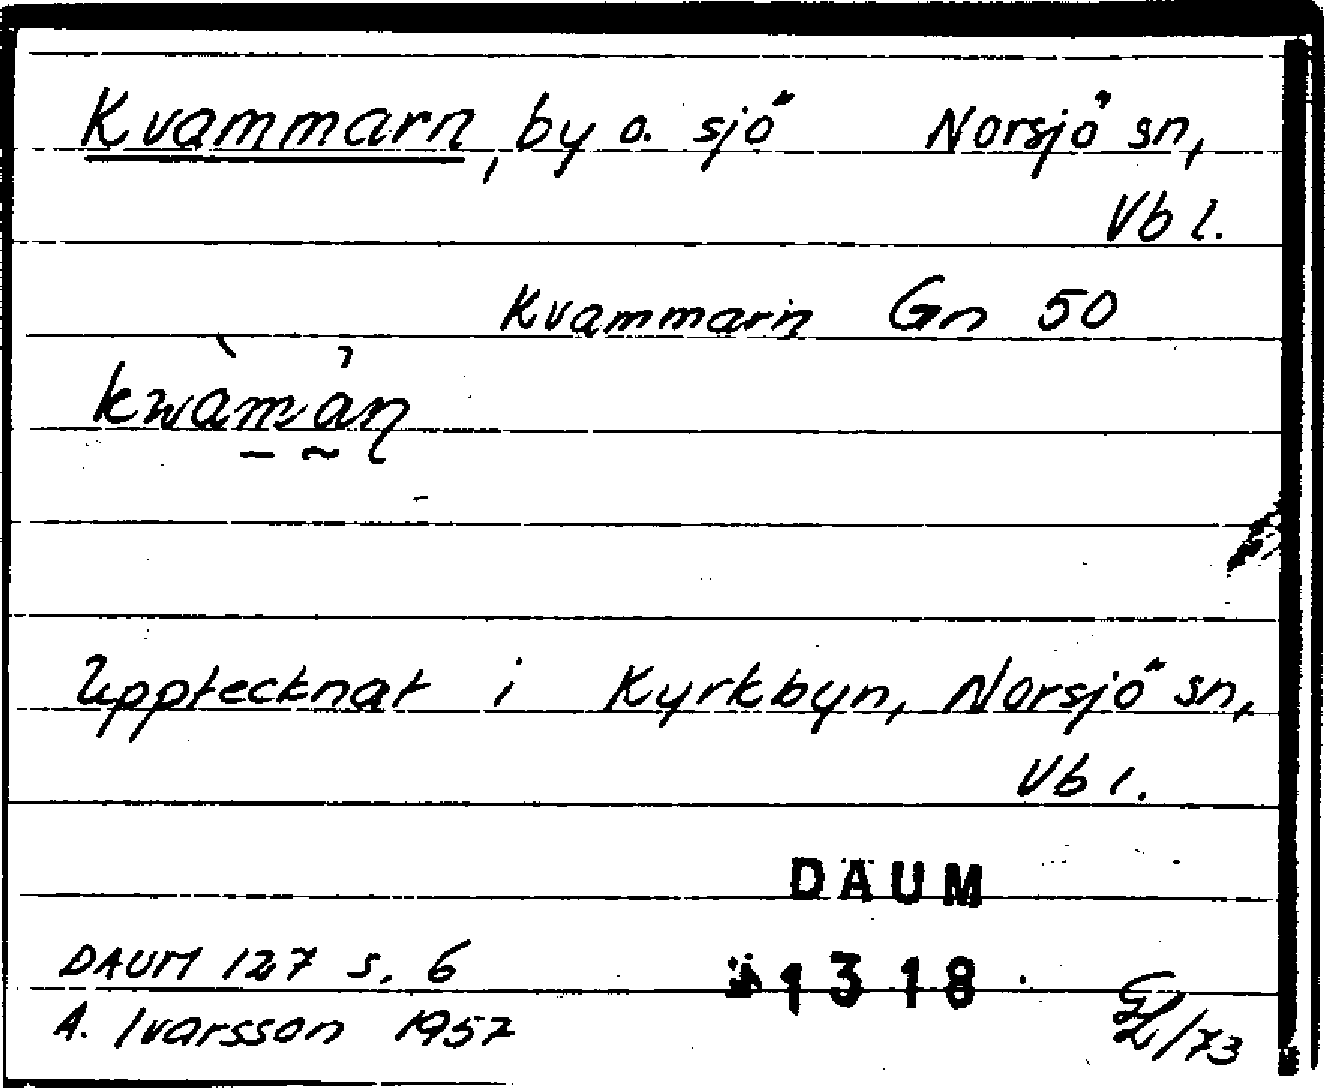 Kvammarn, by o. sjö Norsjö sn,
Vb l.
Kvammarn Gn 50
kwàmàn
Upptecknat i Kyrkbyn, Norsjö sn,
Vb l.
DAUM
DAUM 127 s. 6
1318
A. Ivarsson 1957
/73